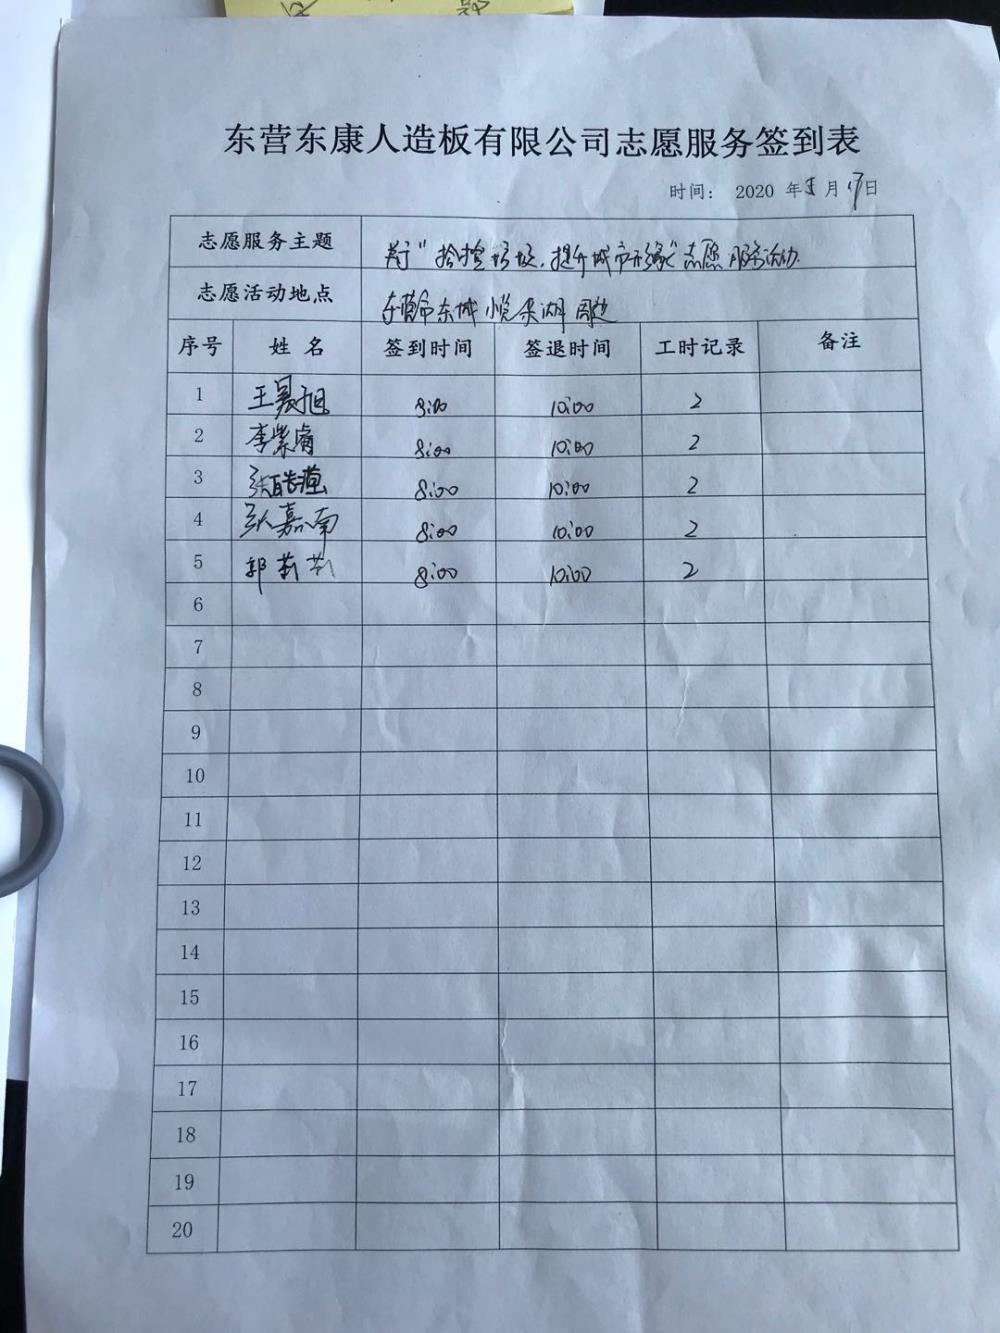 东营东康人造板有限公司志愿服务签到表
时间： 2020 年 月17日
志愿服务主题 关于"捡拾垃圾，提升城市形象"志愿服务活动
志愿活动地点 东营市东城悦来湖周边
序号 姓 名 签到时间 签退时间 工时记录 备注
1 王晨旭 8:00 10:00 2
2 李紫睿 8:00 10:00 2
3 8:00 10:00 2
4 张嘉南 8:00 10:00 2
5 郭莉莉 8:00 10:00 2
6
7
8
9
10
11
12
13
14
15
16
17
18
19
20